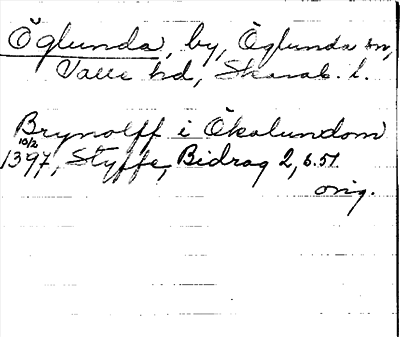 Öglunda, by, Öglunda sn,
Valle hd, Skarab. l.
Brynolff i Ökalundom
10/2
1397, Styffe, Bidrag 2, s. 51
orig.